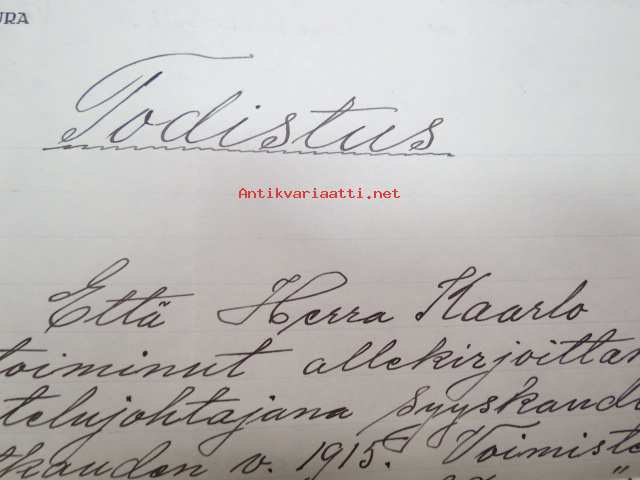 URA
Todistus
Antikvariaatti.net
Että Herra Kaarlo
toiminut allekirjoittan
telujohtajana syyskaude
tkauden v. 1915. Voimiste